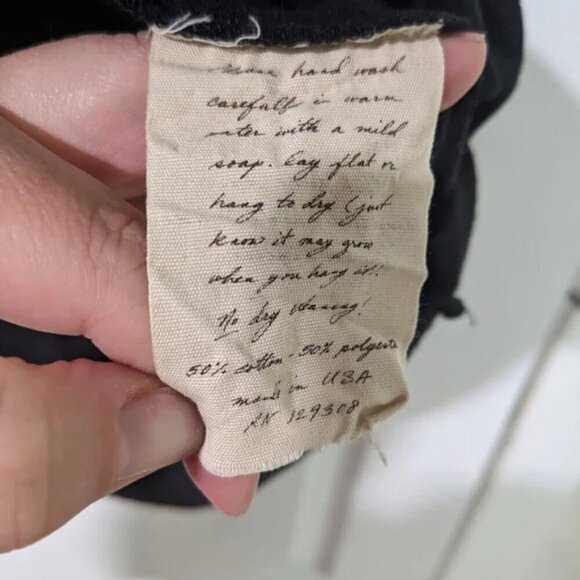 hand wash
carefully in warm
water with a mild
soap. Lay flat or
hang to dry (just
know it may grow
when you hang it!)
No dry cleaning!
50% cotton - 50% polyester
made in USA
RN 129308